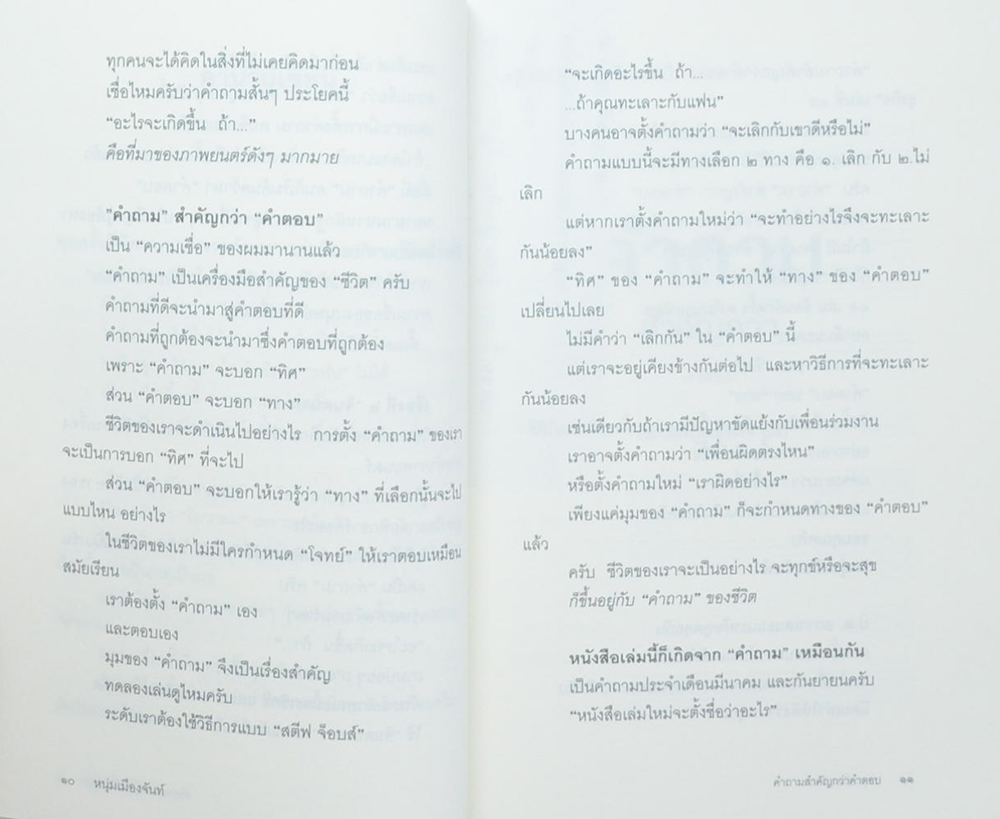 ทุกคนจะได้คิดในสิ่งที่ไม่เคยคิดมาก่อน
เชื่อไหมครับว่าคำถามสั้นๆ ประโยคนี้
“อะไรจะเกิดขึ้น ถ้า...”
คือที่มาของภาพยนตร์ดังๆ มากมาย
“คำถาม” สำคัญกว่า “คำตอบ”
เป็น “ความเชื่อ” ของผมมานานแล้ว
“คำถาม” เป็นเครื่องมือสำคัญของ “ชีวิต” ครับ
คำถามที่ดีจะนำมาสู่คำตอบที่ดี
คำถามที่ถูกต้องจะนำมาซึ่งคำตอบที่ถูกต้อง
เพราะ “คำถาม” จะบอก “ทิศ”
ส่วน “คำตอบ” จะบอก “ทาง”
ชีวิตของเราจะดำเนินไปอย่างไร การตั้ง “คำถาม” ของเรา
จะเป็นการบอก “ทิศ” ที่จะไป
ส่วน “คำตอบ” จะบอกให้เรารู้ว่า “ทาง” ที่เลือกนั้นจะไป
แบบไหน อย่างไร
ในชีวิตของเราไม่มีใครกำหนด “โจทย์” ให้เราตอบเหมือน
สมัยเรียน
เราต้องตั้ง “คำถาม” เอง
และตอบเอง
มุมของ “คำถาม” จึงเป็นเรื่องสำคัญ
ทดลองเล่นดูไหมครับ
ระดับเราต้องใช้วิธีการแบบ “สตีฟ จ็อบส์”
๑๐ หนุ่มเมืองจันท์
“จะเกิดอะไรขึ้น ถ้า...
...ถ้าคุณทะเลาะกับแฟน”
บางคนอาจตั้งคำถามว่า “จะเลิกกับเขาดีหรือไม่”
คำถามแบบนี้จะมีทางเลือก ๒ ทาง คือ ๑. เลิก กับ ๒.ไม่
เลิก
แต่หากเราตั้งคำถามใหม่ว่า “จะทำอย่างไรจึงจะทะเลาะ
กันน้อยลง”
“ทิศ” ของ “คำถาม” จะทำให้ “ทาง” ของ “คำตอบ”
เปลี่ยนไปเลย
ไม่มีคำว่า “เลิกกัน” ใน “คำตอบ” นี้
แต่เราจะอยู่เคียงข้างกันต่อไป และหาวิธีการที่จะทะเลาะ
กันน้อยลง
เช่นเดียวกับถ้าเรามีปัญหาขัดแย้งกับเพื่อนร่วมงาน
เราอาจตั้งคำถามว่า “เพื่อนผิดตรงไหน”
หรือตั้งคำถามใหม่ “เราผิดอย่างไร”
เพียงแค่มุมของ “คำถาม” ก็จะกำหนดทางของ “คำตอบ”
แล้ว
ครับ ชีวิตของเราจะเป็นอย่างไร จะทุกข์หรือจะสุข
ก็ขึ้นอยู่กับ “คำถาม” ของชีวิต
หนังสือเล่มนี้ก็เกิดจาก “คำถาม” เหมือนกัน
เป็นคำถามประจำเดือนมีนาคม และกันยายนครับ
“หนังสือเล่มใหม่จะตั้งชื่อว่าอะไร”
คำถามสำคัญกว่าคำตอบ ๑๑